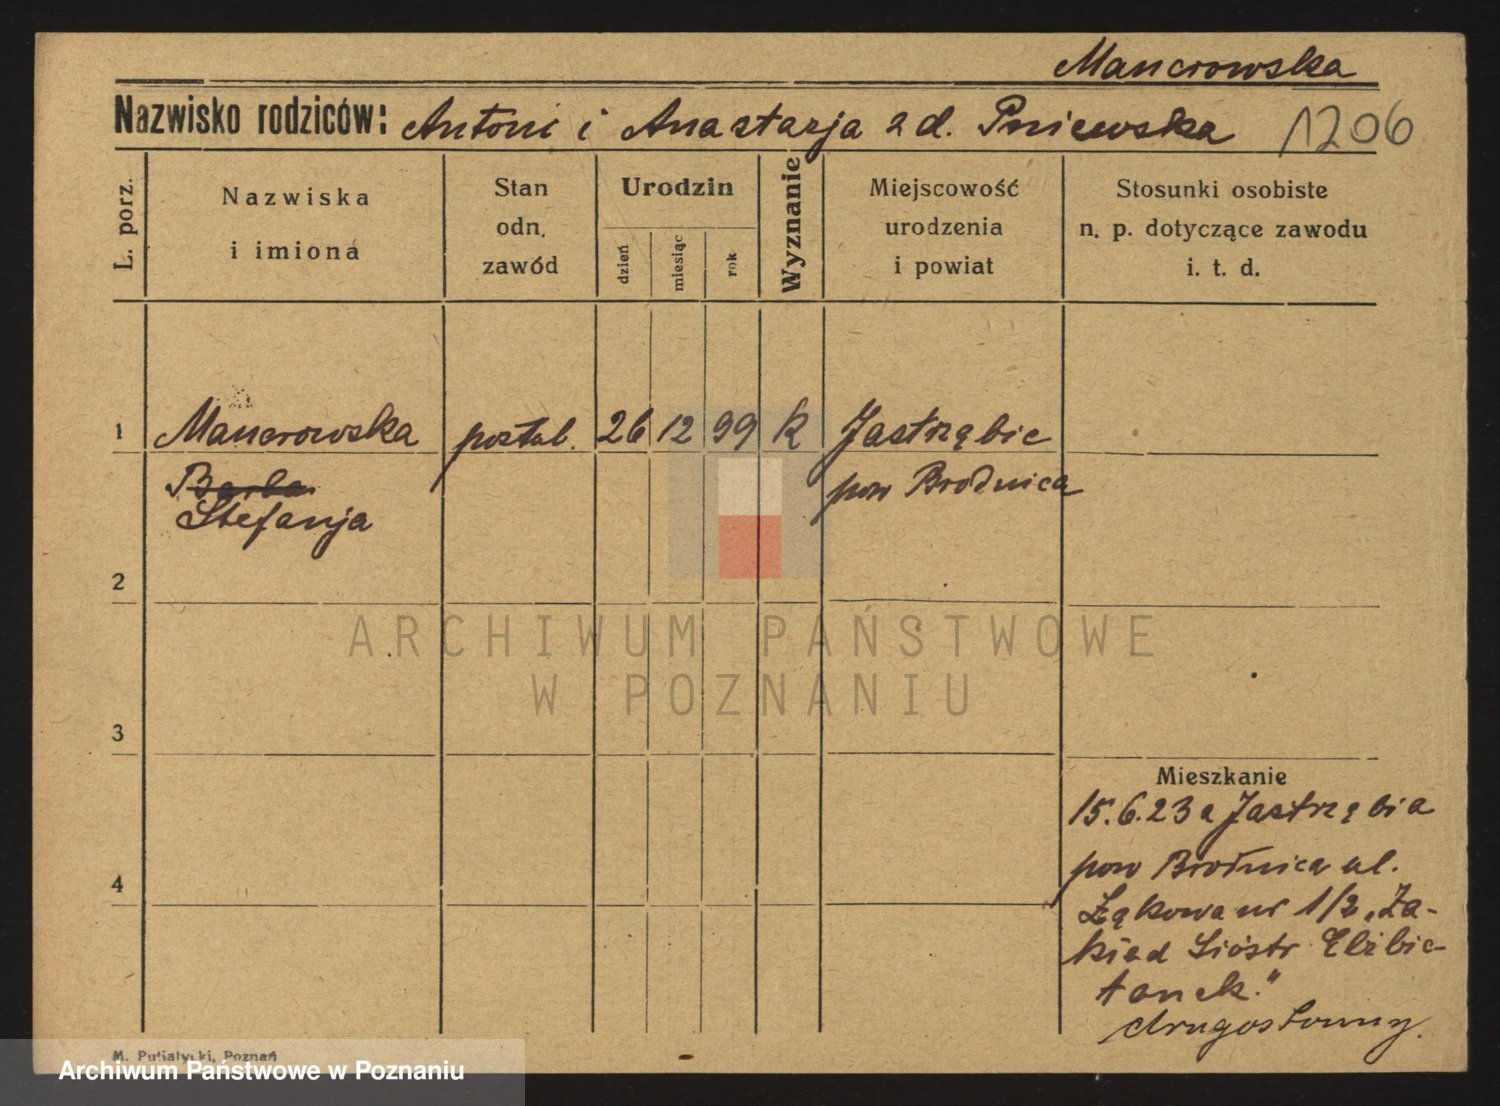 Mancrowska
Nazwisko rodziców: Antoni i Anastazja z d. Pniewska 1206
L. porz.
Nazwiska
i imiona
Stan
odn.
zawód
Urodzin
dzień
miesiąc
rok
Wyznanie
Miejscowość
urodzenia
i powiat
Stosunki osobiste
n. p. dotyczące zawodu
i. t. d.
1 Mancrowska postul. 26 12 99 k Jastrzębie
Barba pow Brodnica
Stefanja
2
ARCHIWUM PAŃSTWOWE
W POZNANIU
3
Mieszkanie
15.6.23 z Jastrzębia
pow Brodnica ul.
4
Łąkowa nr 1/2 „Za-
kład Sióstr Elżbie-
tanek."
drugostonny.
M. Putiatycki, Poznań
Archiwum Państwowe w Poznaniu